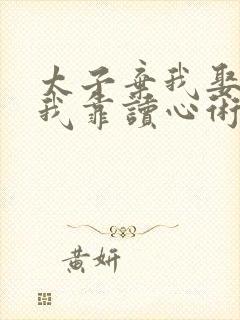 太子棄我娶
我靠讀心術
黃妍